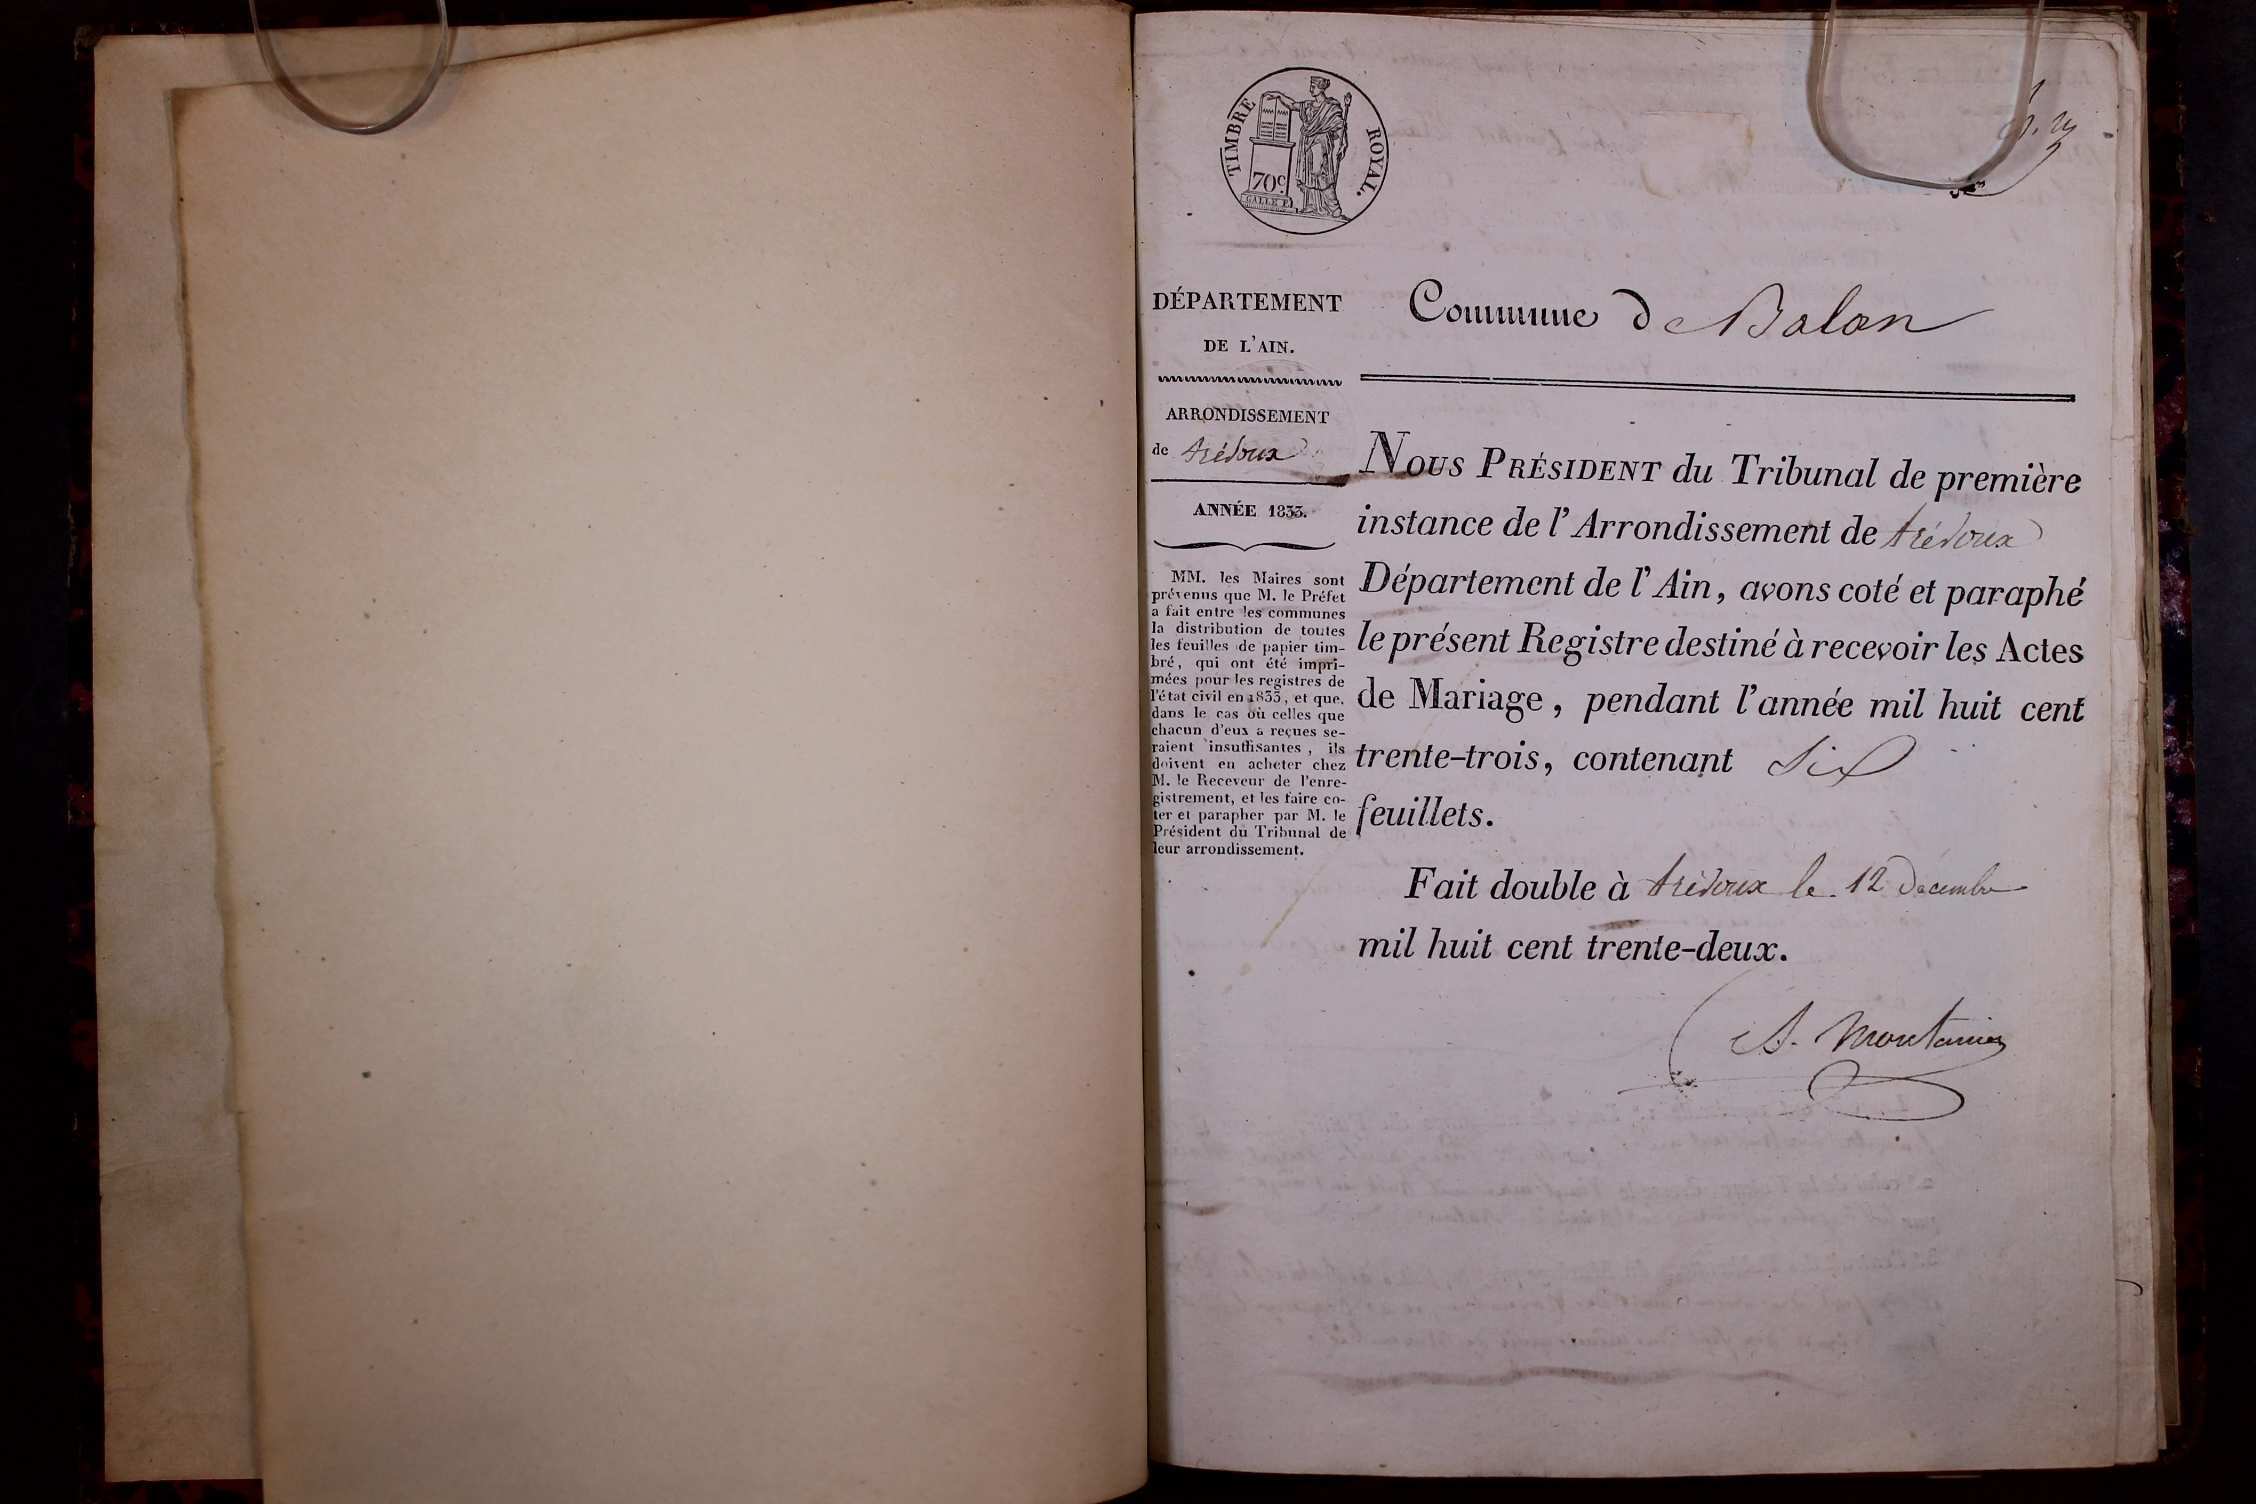 TIMBRE ROYAL.
70c.
GALLE F.
DÉPARTEMENT
DE L'AIN.
ARRONDISSEMENT
de trévoux
ANNÉE 1833.
MM. les Maires sont
prévenus que M. le Préfet
a fait entre les communes
la distribution de toutes
les feuilles de papier tim-
bré, qui ont été impri-
mées pour les registres de
l'état civil en 1833, et que,
dans le cas où celles que
chacun d'eux a reçues se-
raient insuffisantes, ils
doivent en acheter chez
M. le Receveur de l'enre-
gistrement, et les faire co-
ter et parapher par M. le
Président du Tribunal de
leur arrondissement.
Commune de Balan
NOUS PRÉSIDENT du Tribunal de première
instance de l'Arrondissement de trévoux
Département de l'Ain, avons coté et paraphé
le présent Registre destiné à recevoir les Actes
de Mariage, pendant l'année mil huit cent
trente-trois, contenant Six
feuillets.
Fait double à trévoux le 12 Décembre
mil huit cent trente-deux.
A. Montanier